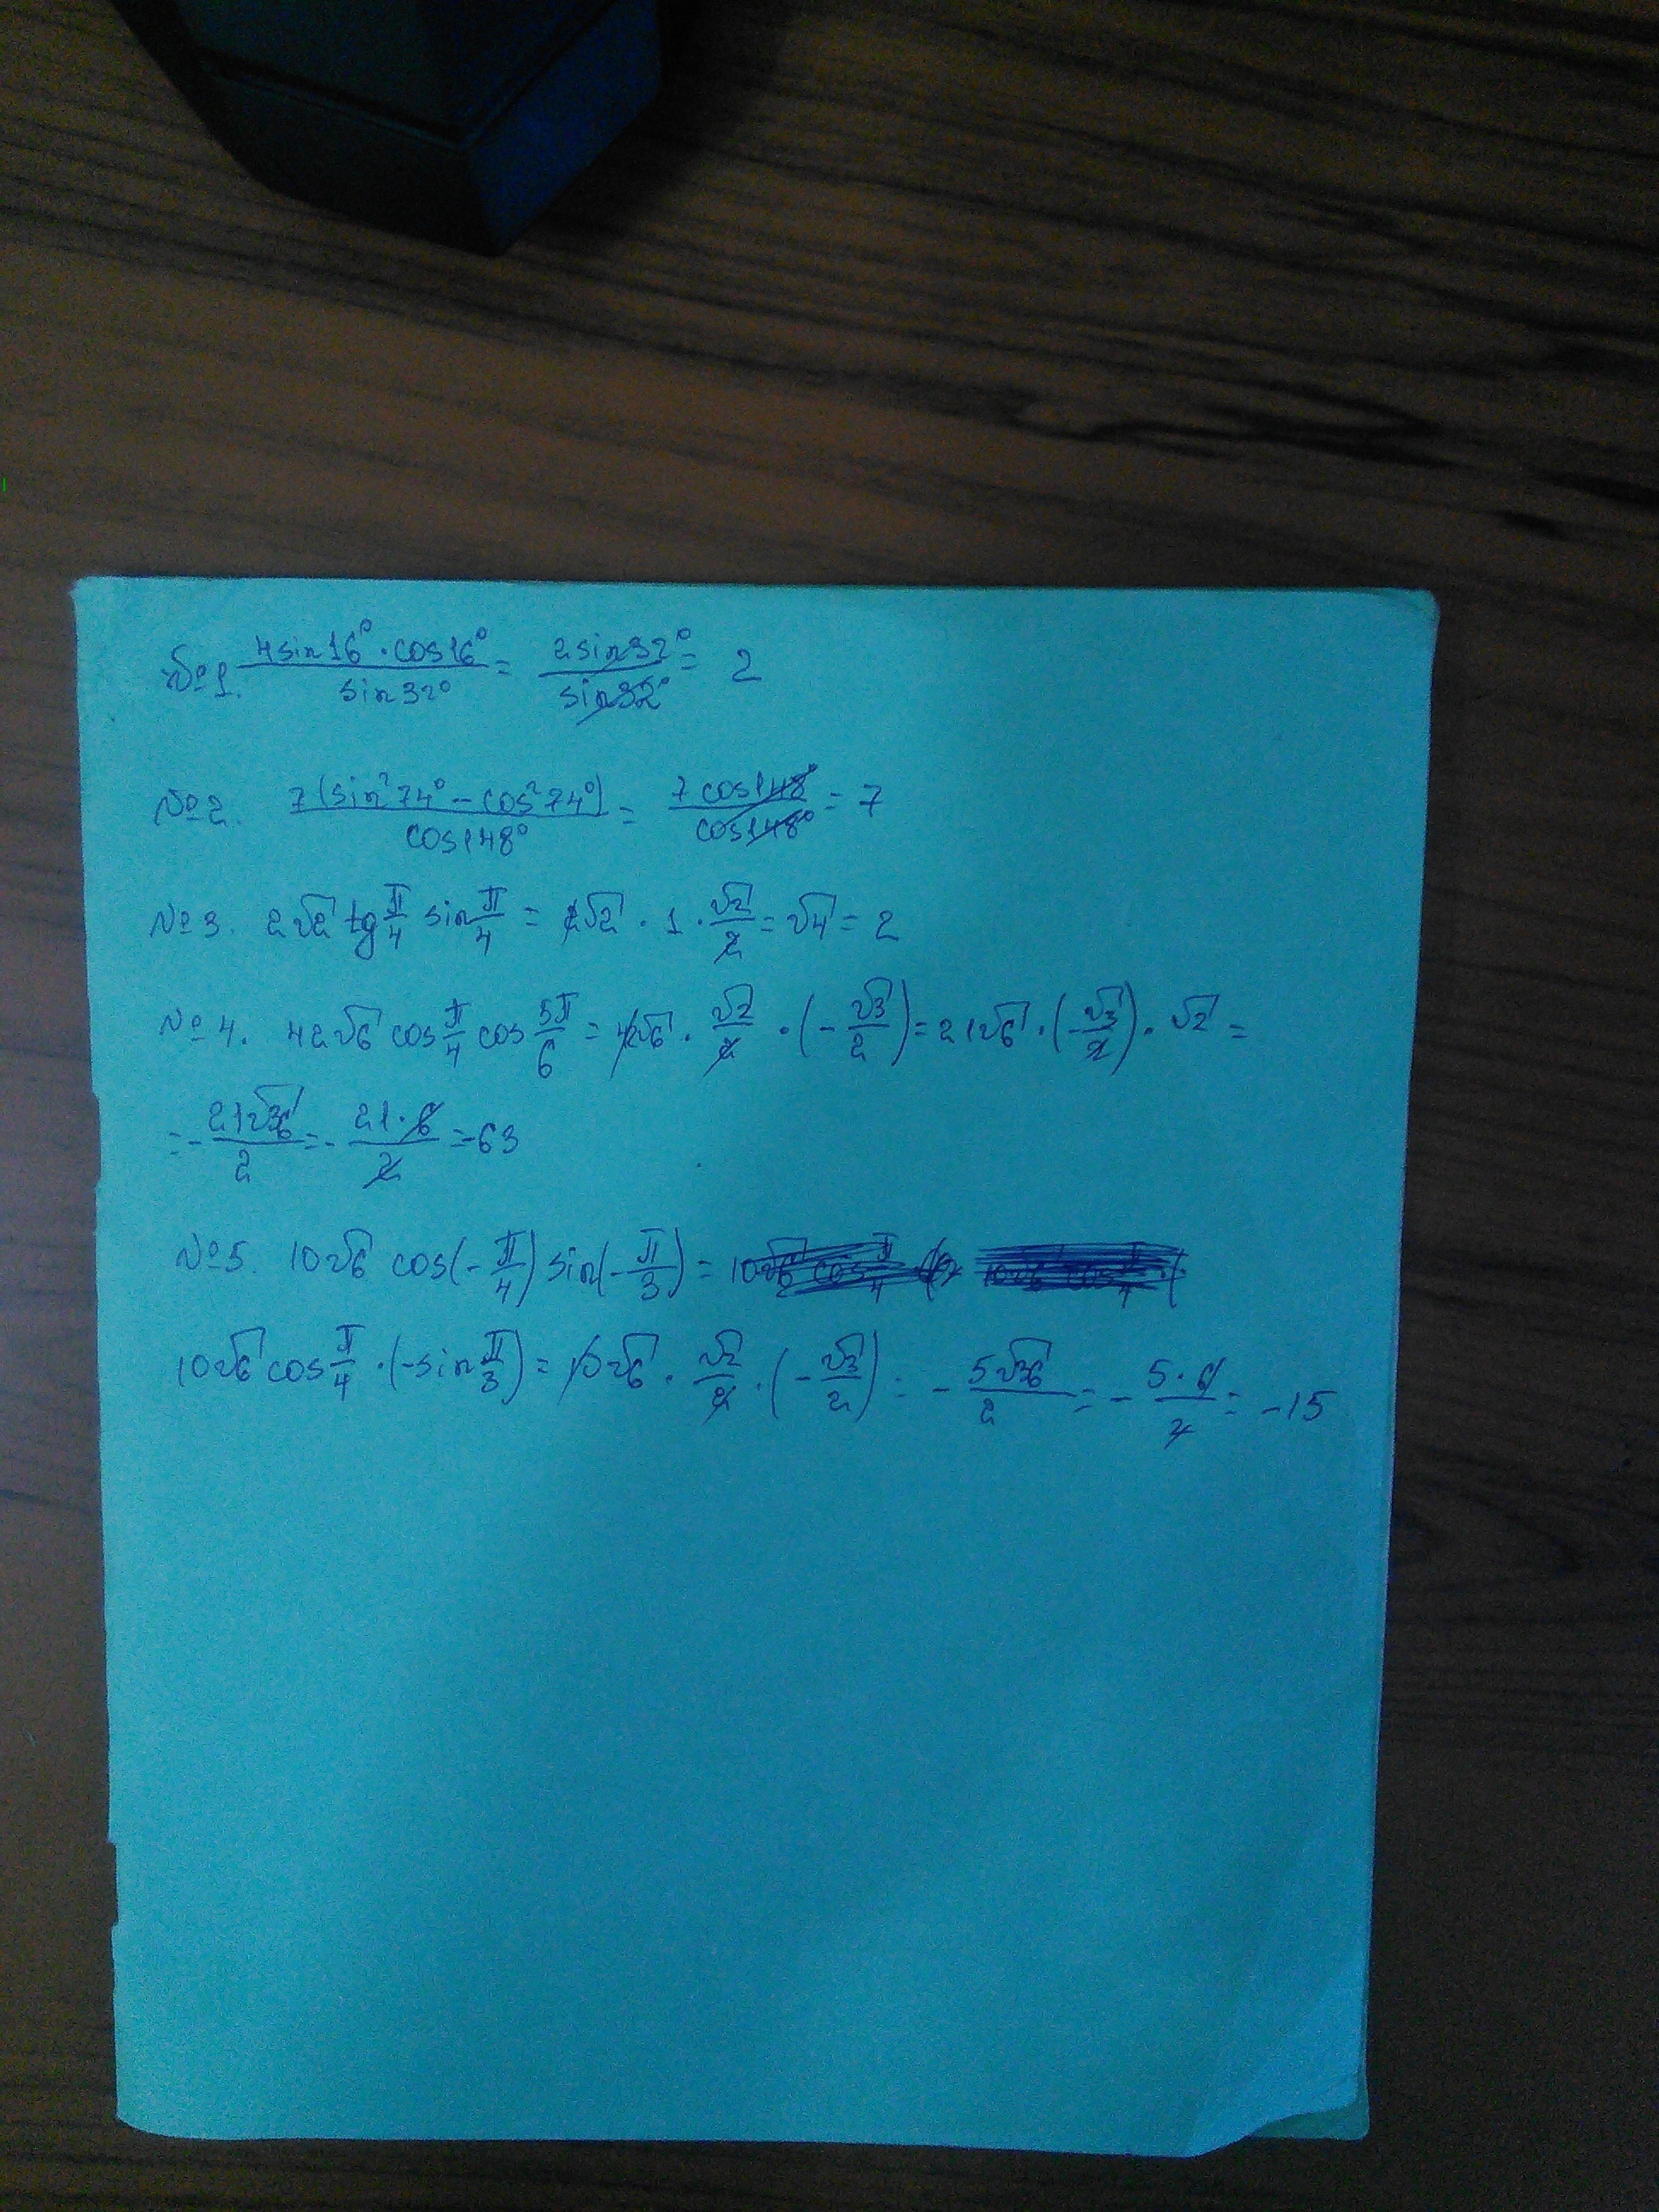 №1. 4sin16°·cos16° / sin32° = 2sin32° / sin32° = 2
№2. 7(sin²74° - cos²74°) / cos148° = 7cos148° / cos148° = 7
№3. 2√2 tg π/4 sin π/4 = 2√2 · 1 · √2/2 = √4 = 2
№4. 42√6 cos π/4 cos 5π/6 = 42√6 · √2/2 · (-√3/2) = 21√6 · (-√3/2) · √2 =
= - 21√36 / 2 = - 21·6 / 2 = -63
№5. 10√6 cos(-π/4) sin(-π/3) =
10√6 cos π/4 · (-sin π/3) = 10√6 · √2/2 · (-√3/2) = - 5√36 / 2 = - 5·6 / 2 = -15